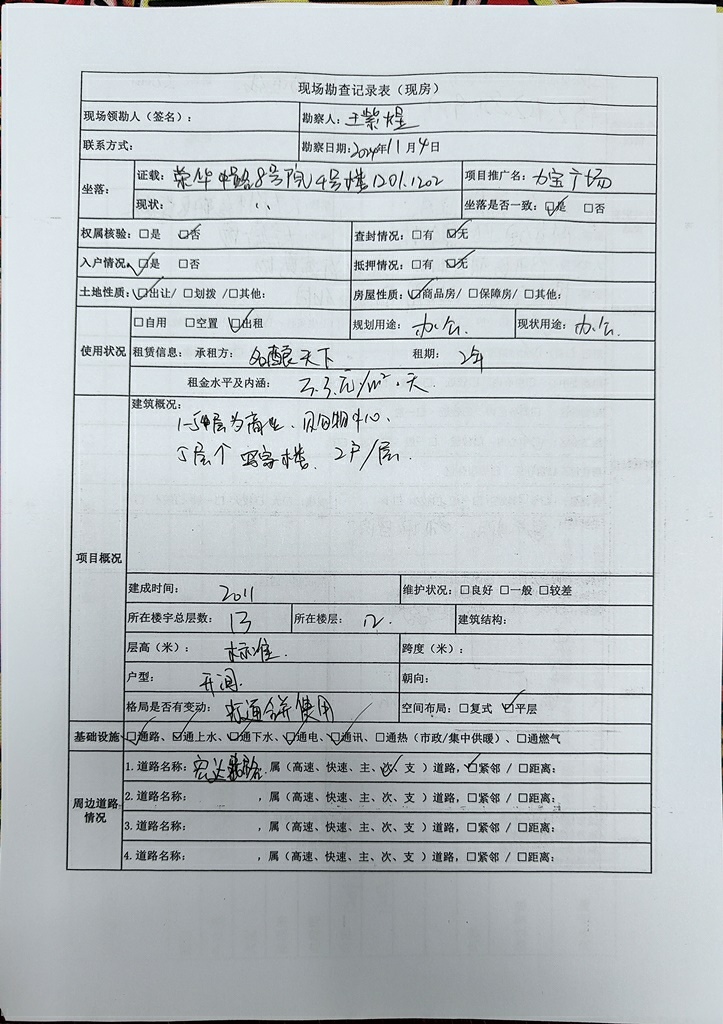 现场勘查记录表（现房）
现场领勘人（签名）： 勘察人：王紫煋
联系方式： 勘察日期：2024年11月4日
坐落： 证载：荣华中路8号院4号楼1201.1202 项目推广名：力宝广场
现状： 〃 坐落是否一致：☑是 □否
权属核验：□是 ☑否 查封情况：□有 ☑无
入户情况：☑是 □否 抵押情况：□有 ☑无
土地性质：☑出让/ □划拨 /□其他： 房屋性质：☑商品房/ □保障房/ □其他：
使用状况 □自用 □空置 ☑出租 规划用途：办公. 现状用途：办公.
租赁信息：承租方：名酿天下 租期：2年
租金水平及内涵：3.3元/m²·天
项目概况 建筑概况：
层为商业、购物中心.
5层个 写字楼. 2户/层.
建成时间：2011 维护状况：□良好 □一般 □较差
所在楼宇总层数：13 所在楼层：12. 建筑结构：
层高（米）：标准. 跨度（米）：
户型：开间. 朝向：
格局是否有变动：打通合并使用 空间布局：□复式 ☑平层
基础设施：☑通路、☑通上水、☑通下水、☑通电、☑通讯、□通热（市政/集中供暖）、□通燃气
周边道路情况 1.道路名称：宏达路，属（高速、快速、主、次✓、支 ）道路，☑紧邻 / □距离：
2.道路名称： ，属（高速、快速、主、次、支 ）道路，□紧邻 / □距离：
3.道路名称： ，属（高速、快速、主、次、支 ）道路，□紧邻 / □距离：
4.道路名称： ，属（高速、快速、主、次、支 ）道路，□紧邻 / □距离：